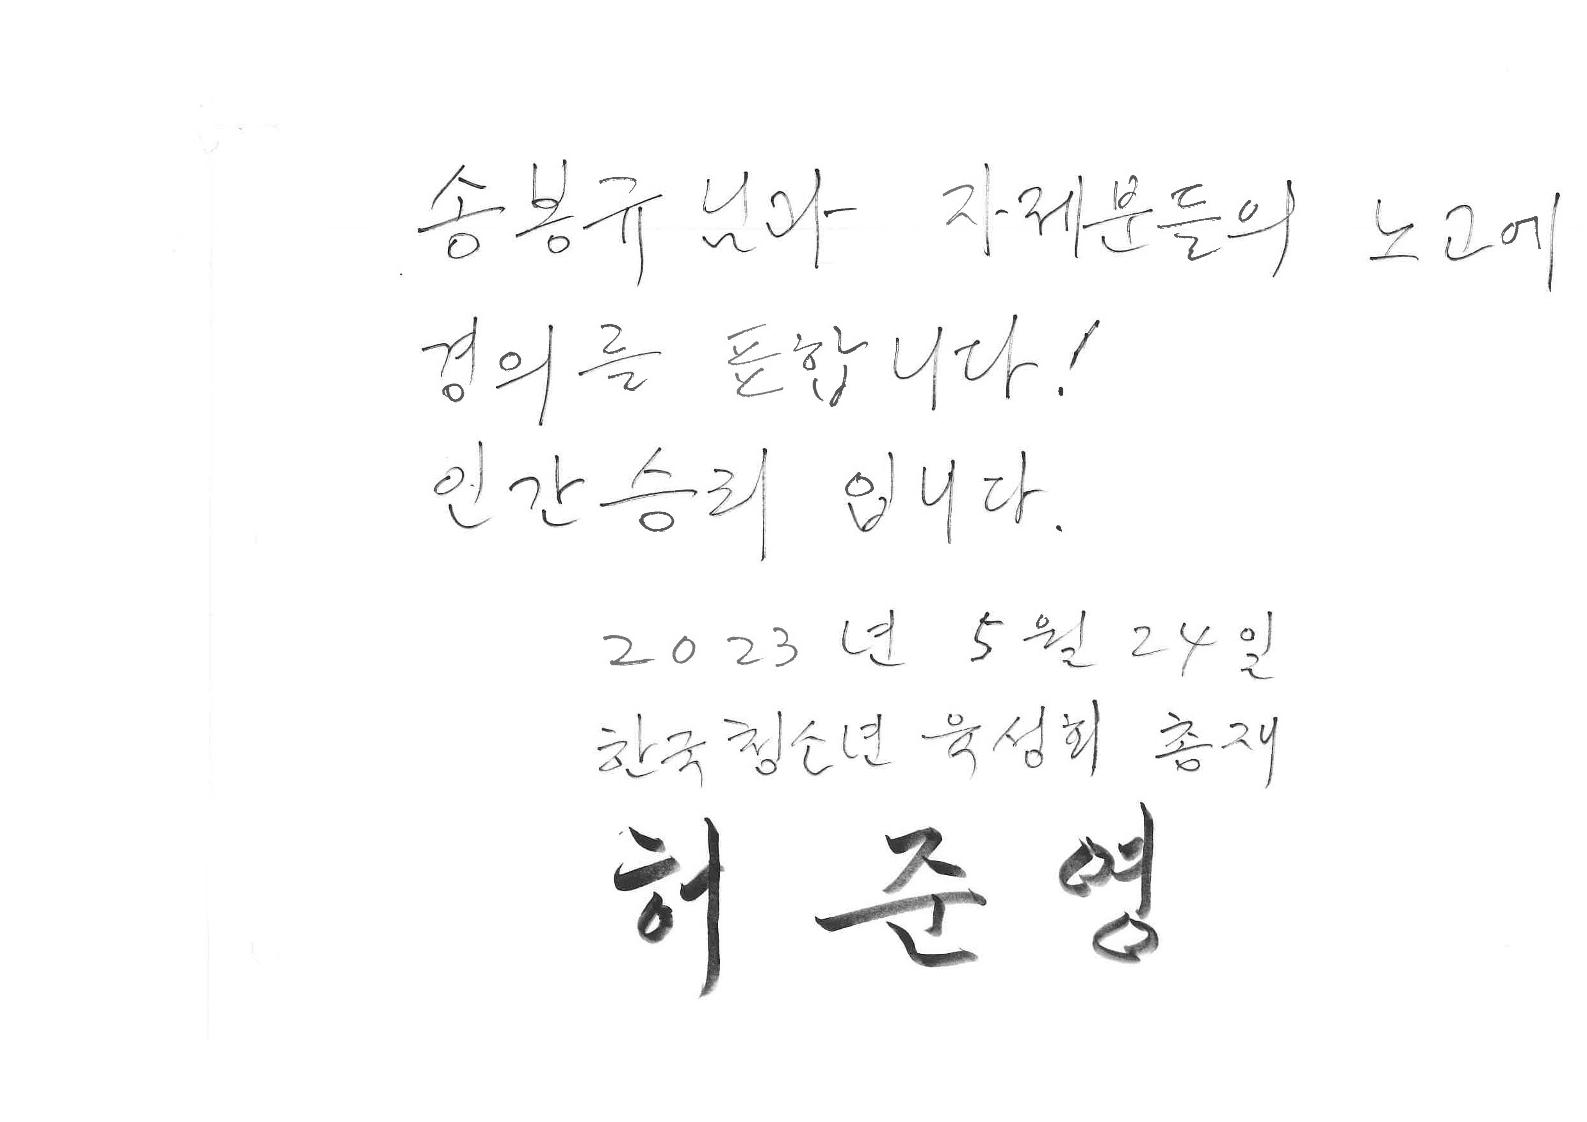 송봉규님과 자제분들의 노고에
경의를 표합니다!
인간승리 입니다.
2023년 5월 24일
한국청소년 육성회 총재
허 준 영